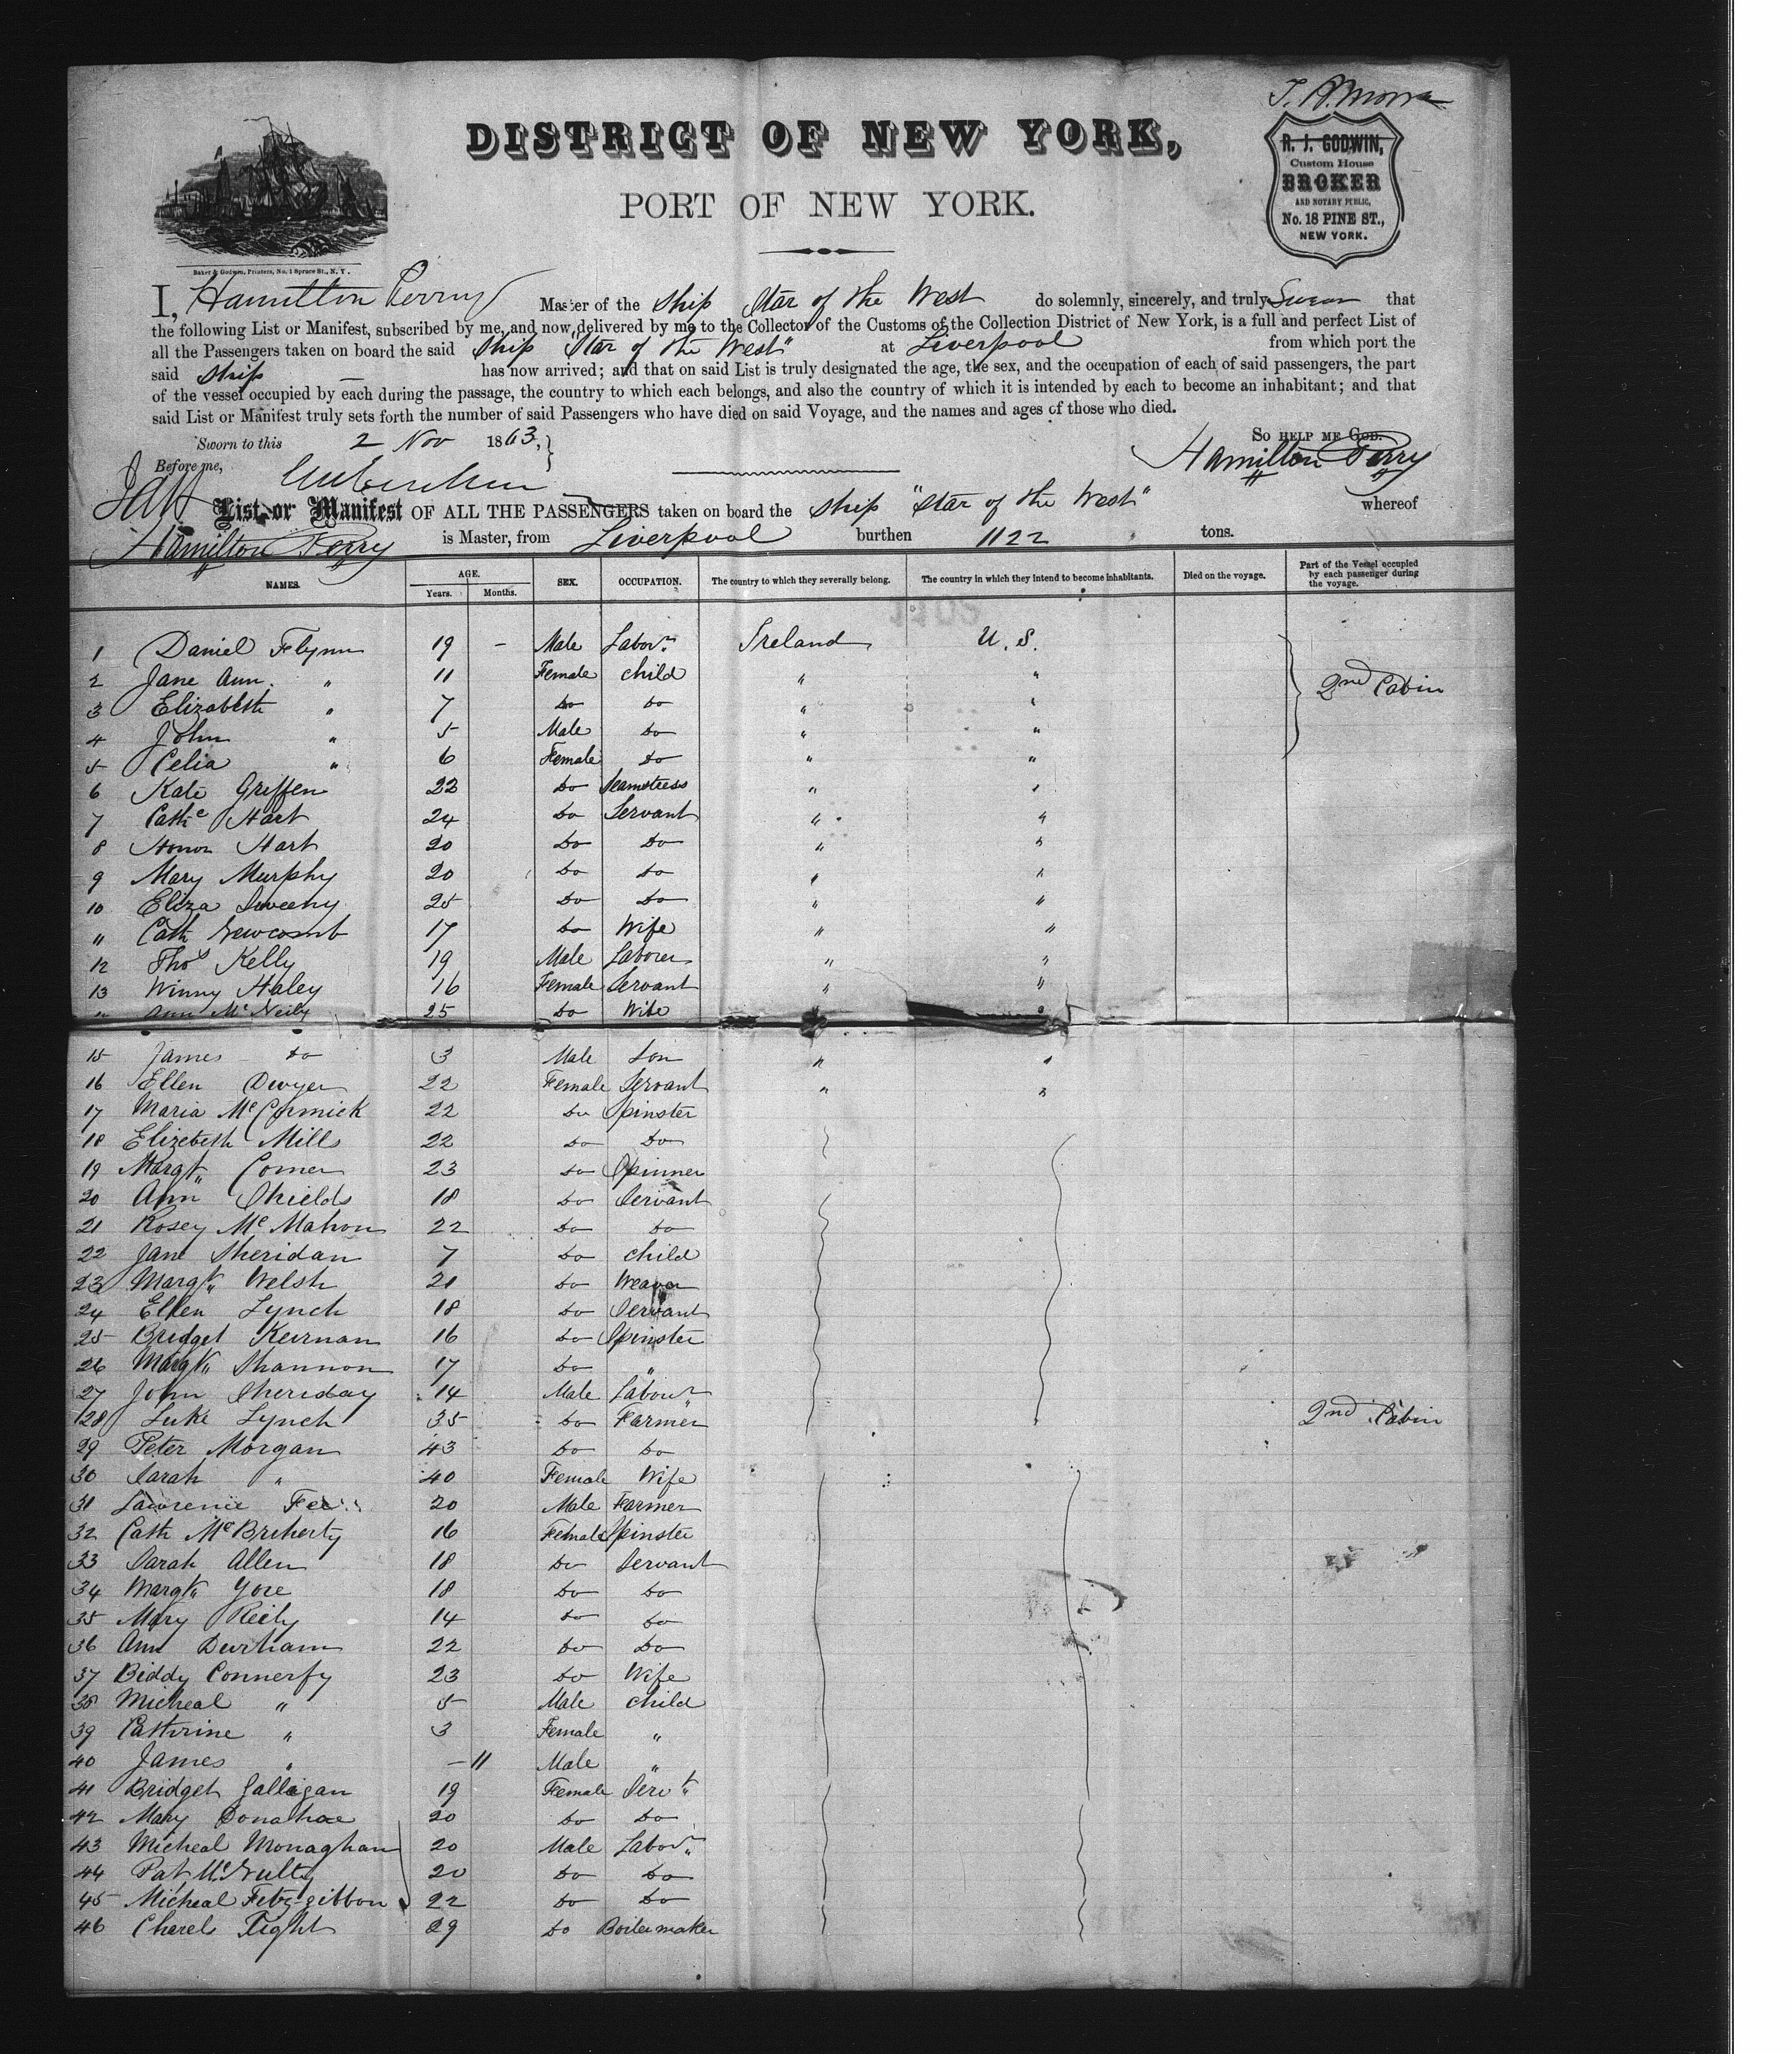 T. R. Morse
DISTRICT OF NEW YORK,
PORT OF NEW YORK.
R. J. GODWIN,
Custom House
BROKER
AND NOTARY PUBLIC,
No. 18 PINE ST.,
NEW YORK.
Baker & Godwin, Printers, No. 1 Spruce St., N. Y.
I, Hamilton Perry Master of the Ship Star of the West do solemnly, sincerely, and truly Swear that
the following List or Manifest, subscribed by me, and now delivered by me to the Collector of the Customs of the Collection District of New York, is a full and perfect List of
all the Passengers taken on board the said Ship Star of the West" at Liverpool from which port the
said Ship has now arrived; and that on said List is truly designated the age, the sex, and the occupation of each of said passengers, the part
of the vessel occupied by each during the passage, the country to which each belongs, and also the country of which it is intended by each to become an inhabitant; and that
said List or Manifest truly sets forth the number of said Passengers who have died on said Voyage, and the names and ages of those who died.
Sworn to this 2 Nov 1863, So HELP ME GOD.
Before me, Hamilton Perry
List or Manifest OF ALL THE PASSENGERS taken on board the Ship "Star of the West" whereof
Hamilton Perry is Master, from Liverpool burthen 1122 tons.
NAMES. AGE. Years. Months. SEX. OCCUPATION. The country to which they severally belong. The country in which they intend to become inhabitants. Died on the voyage. Part of the Vessel occupied by each passenger during the voyage.
1 Daniel Flynn 19 – Male Labor. Ireland U. S.
2 Jane Ann. " 11 Female child " " 2nd Cabin
3 Elizabeth " 7 do do " "
4 John " 5 Male do " "
5 Celia " 6 Female do " "
6 Kate Griffen 22 do Seamstress " "
7 Cathe Hart 24 do Servant " "
8 Honor Hart 20 do do " "
9 Mary Murphy 20 do do " "
10 Eliza Sweeny 25 do do " "
11 Cath Newcomb 17 do Wife " "
12 Thos Kelly 19 Male Laborer " "
13 Winny Haley 16 Female Servant " "
" Ann McNeily 25 do Wife "
15 James do 3 Male Son " "
16 Ellen Dwyer 22 Female Servant " "
17 Maria McCormick 22 do Spinster
18 Elizebeth Mills 22 do do
19 Margt Comer 23 do Spinner
20 Ann Shields 18 do Servant
21 Rosey McMahon 22 do do
22 Jane Sheridan 7 do child
23 Margt Welsh 21 do Weaver
24 Ellen Lynch 18 do Servant
25 Bridget Keirnan 16 do Spinster
26 Margt Shannon 17 do "
27 John Sheriday 14 Male Labour
28 Luke Lynch 35 do Farmer 2nd Cabin
29 Peter Morgan 43 do do
30 Sarah " 40 Female Wife
31 Lawrence 20 Male Farmer
32 Cath McBreherty 16 Female Spinster
33 Sarah Allen 18 do Servant
34 Margt Yore 18 do do
35 Mary Reily 14 do do
36 Ann Durham 22 do do
37 Biddy Connerfy 23 do Wife
38 Micheal " 5 Male child
39 Catherine " 3 Female "
40 James " – 11 Male "
41 Bridget Galligan 19 Female Servt
42 Mary Donahoe 20 do do
43 Micheal Monaghan 20 Male Labor
44 Pat McNulty 20 do do
45 Micheal Fitzgibbon 22 do do
46 Charels Tight 29 do Boilermaker